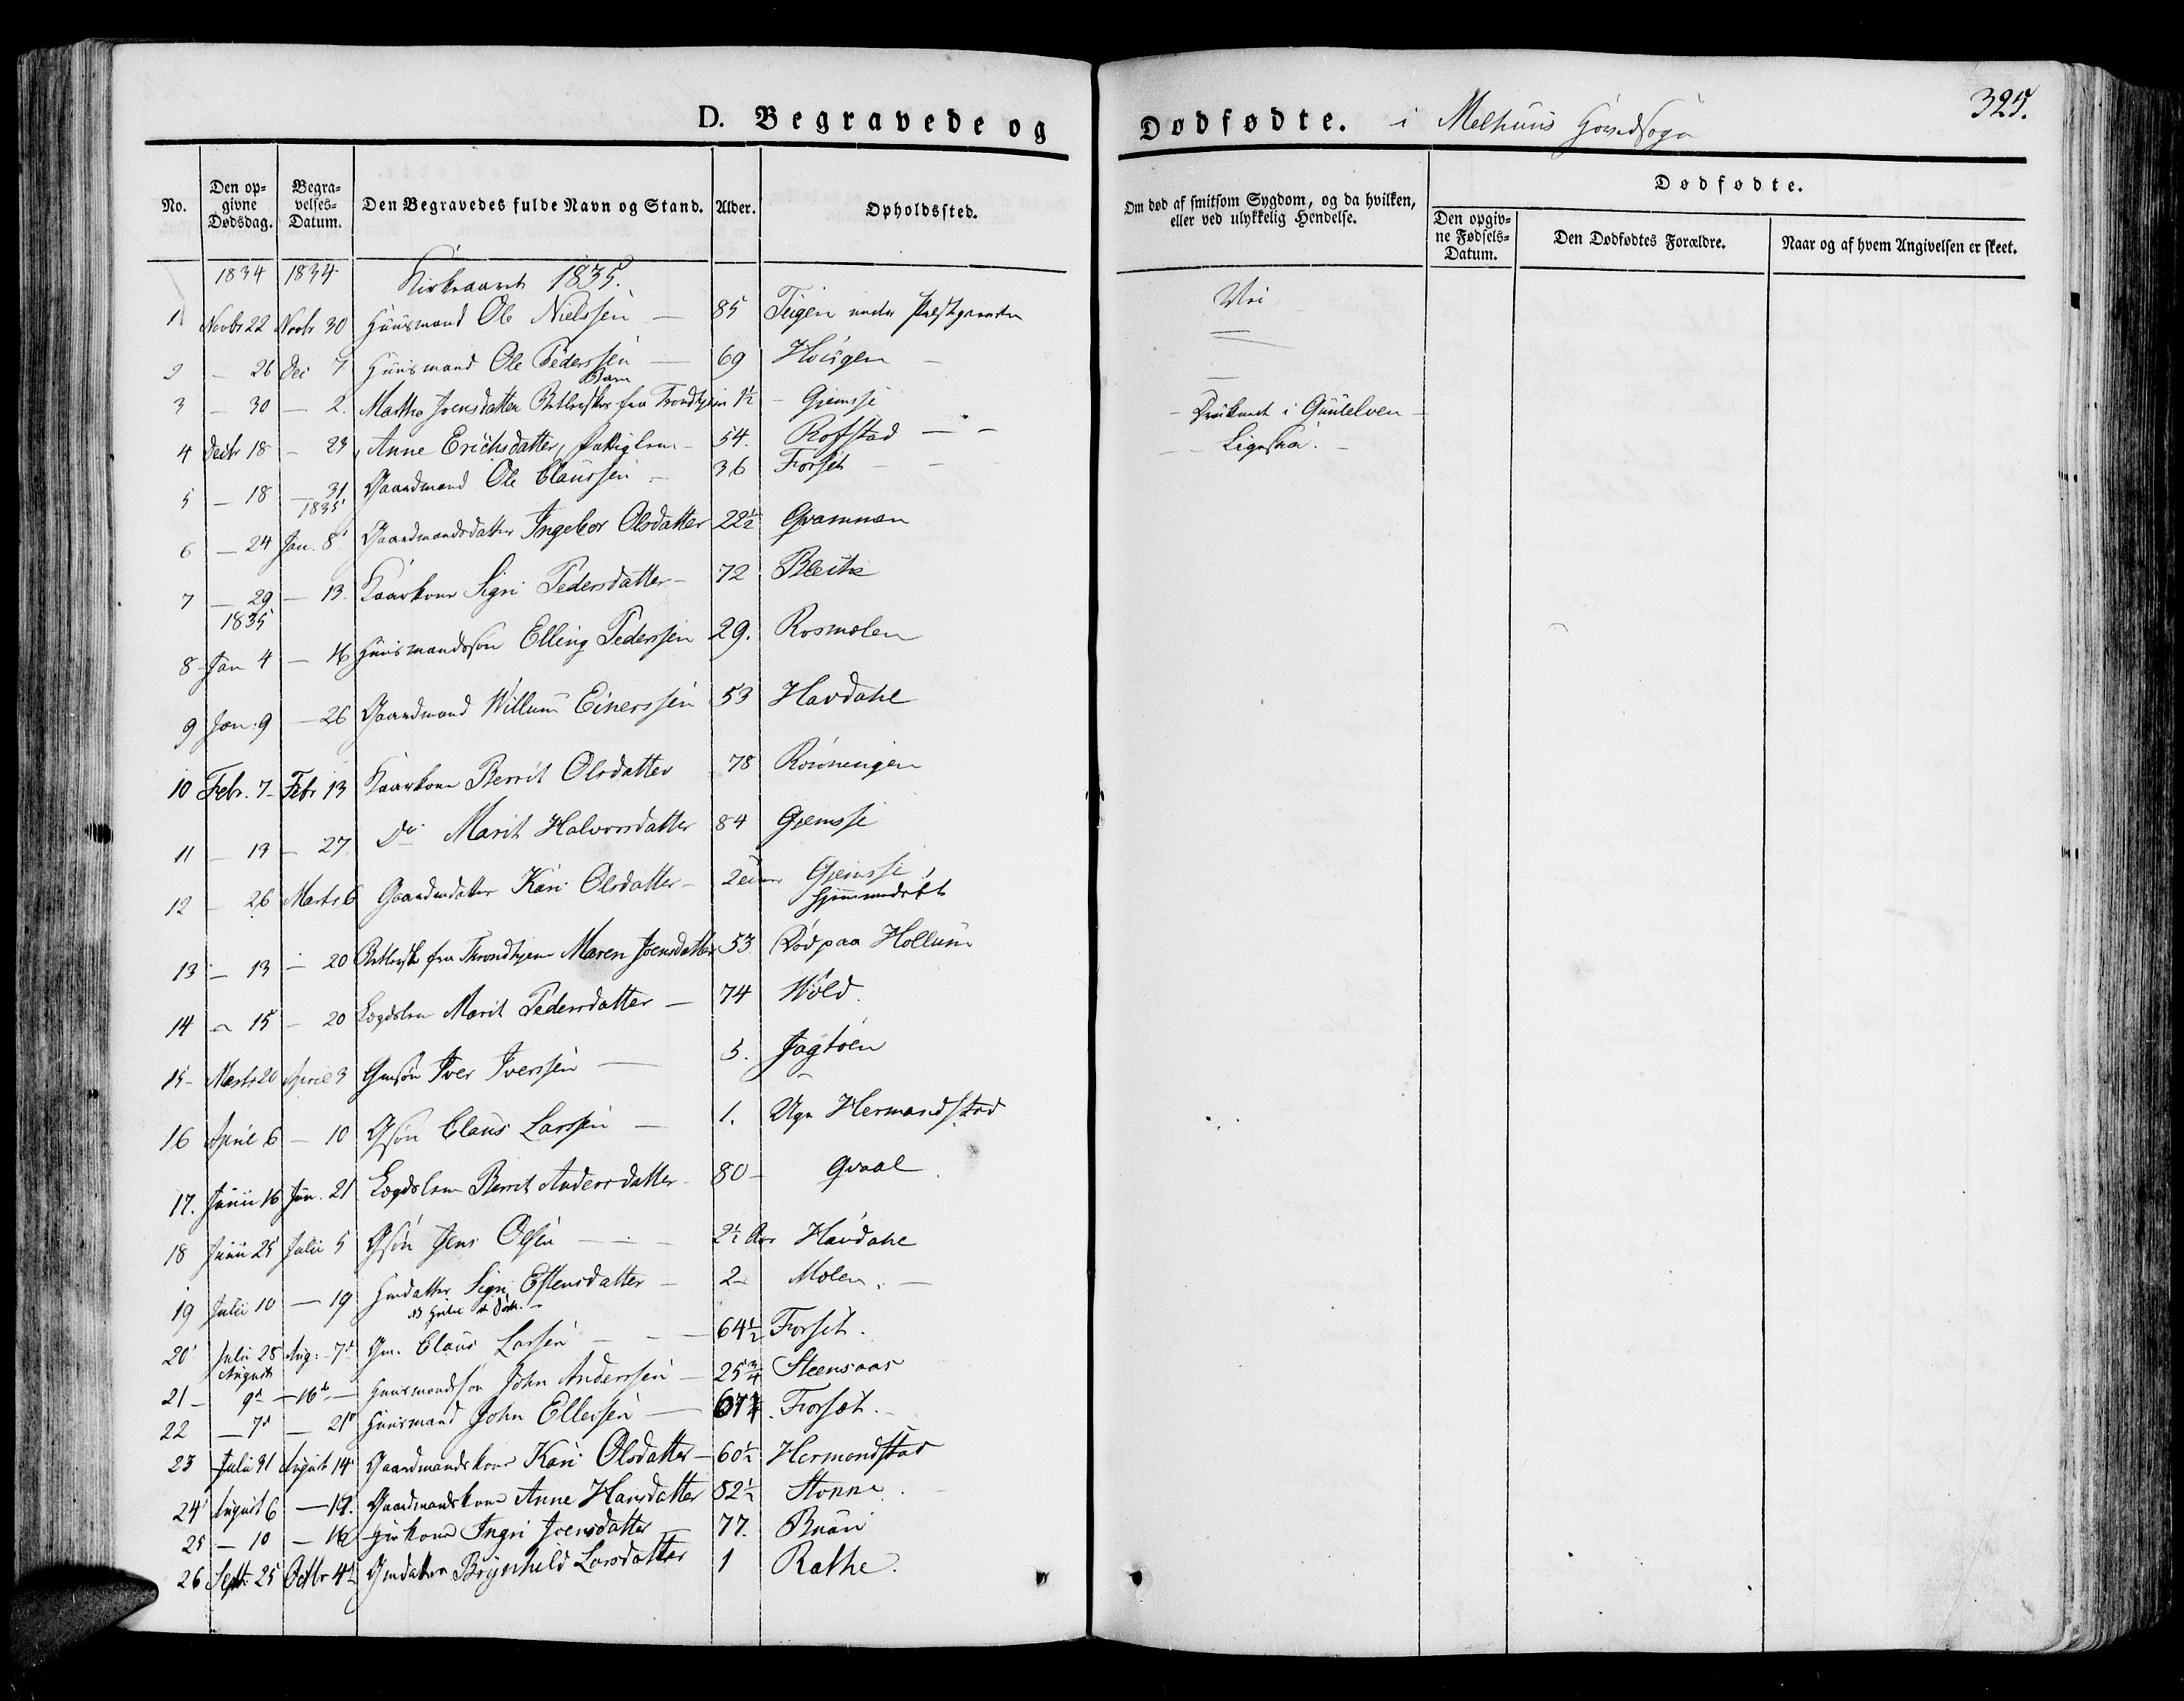 D. Begravede og Dødfødte. i Melhuus Hovedsogn
325.
No.
Den opgivne Dødsdag.
Begravelses-Datum.
Den Begravedes fulde Navn og Stand.
Alder.
Opholdssted.
Om død af smitsom Sygdom, og da hvilken, eller ved ulykkelig Hendelse.
Dødfødte.
Den opgivne Fødsels-Datum.
Den Dødfødtes Forældre.
Naar og af hvem Angivelsen er skeet.
1834 1834 Kirkeaaret 1835.
1 Novbr 22 Novbr 30 Huusmand Ole Nielssen — 85 Teigen under Præstgaarden
2 — 26 Dec 7 Huusmand Ole Pederssen — 69 Hougen —
Barn
3 — 30 — 2. Marthe Joensdatter fra Trondhjem 1½ — Gjemsse — Druknet i Guulelven —
4 Decbr 18 — 23 Anne Erichsdatter, Fattiglem — 54. Rofstad — — Ligesaa. —
5 — 18 — 31 Gaardmand Ole Claussen — 36 Forset — —
1835
6 — 24 Jan. 8 Gaardmandsdatter Ingebor Olsdatter 22½ Qvammen
7 — 29 — 13. Kaarkone Sigri Pedersdatter — 72 Bleike
1835
8 Jan 4 — 16 Huusmandssøn Elling Pederssen 29. Rosmolen
9 Jan. 9 — 26 Gaardmand Willum Einerssen 53 Havdahl
10 Febr. 7 — Febr 13 Kaarkone Berrit Olsdatter 78 Rønningen
11 — 19 — 27 Do Marit Halvorsdatter 84 Gjemsse
12 — 26 Marts 6 Gaardmdatter Kari Olsdatter — Gjemsse
Hjemmedøbt
13 — 13 — 20 fra Throndhjem Maren Joensdatter 53 Død paa Hollum
14 — 15 — 20 Lægdslem Marit Pedersdatter — 74 Wold.
15 — Marts 20 April 3 Gmsøn Iver Iverssen — 5. Jagtøen
16 April 6 — 10 Gsøn Claus Larssen — 1. Hermandstad
17. Junii 16 Jun. 21 Lægdslem Berrit Andersdatter — 80 — Qvaal
18 Junii 25 Julii 5 Gsøn Jens Olsen — — 2½ Aar Havdahl
19 Julii 10 — 19 Hmdatter Sigri Estensdatter — 2 — Molen. —
20 Julii 28 Aug: 7d Gm. Claus Larsen — — 64½ Forset.
August
21 — 9d — 16d — Huusmandssøn John Anderssen — 25¾ Steensaas
22 — 7d — 21d Huusmand John Ellefsen — Forset. —
23 Julii 31 August 14 Gaardmandskone Kari Olsdatter — 60½ Hermandstad
24 August 6 — 14. Gaardmandskone Anne Hansdatter 52½ Stonne.
25 — 10 — 16 Ingri Joensdatter 77. Buan
26 Septbr 25 Octbr 4d Gmdatter Brynhild Larsdatter 1 Rathe.